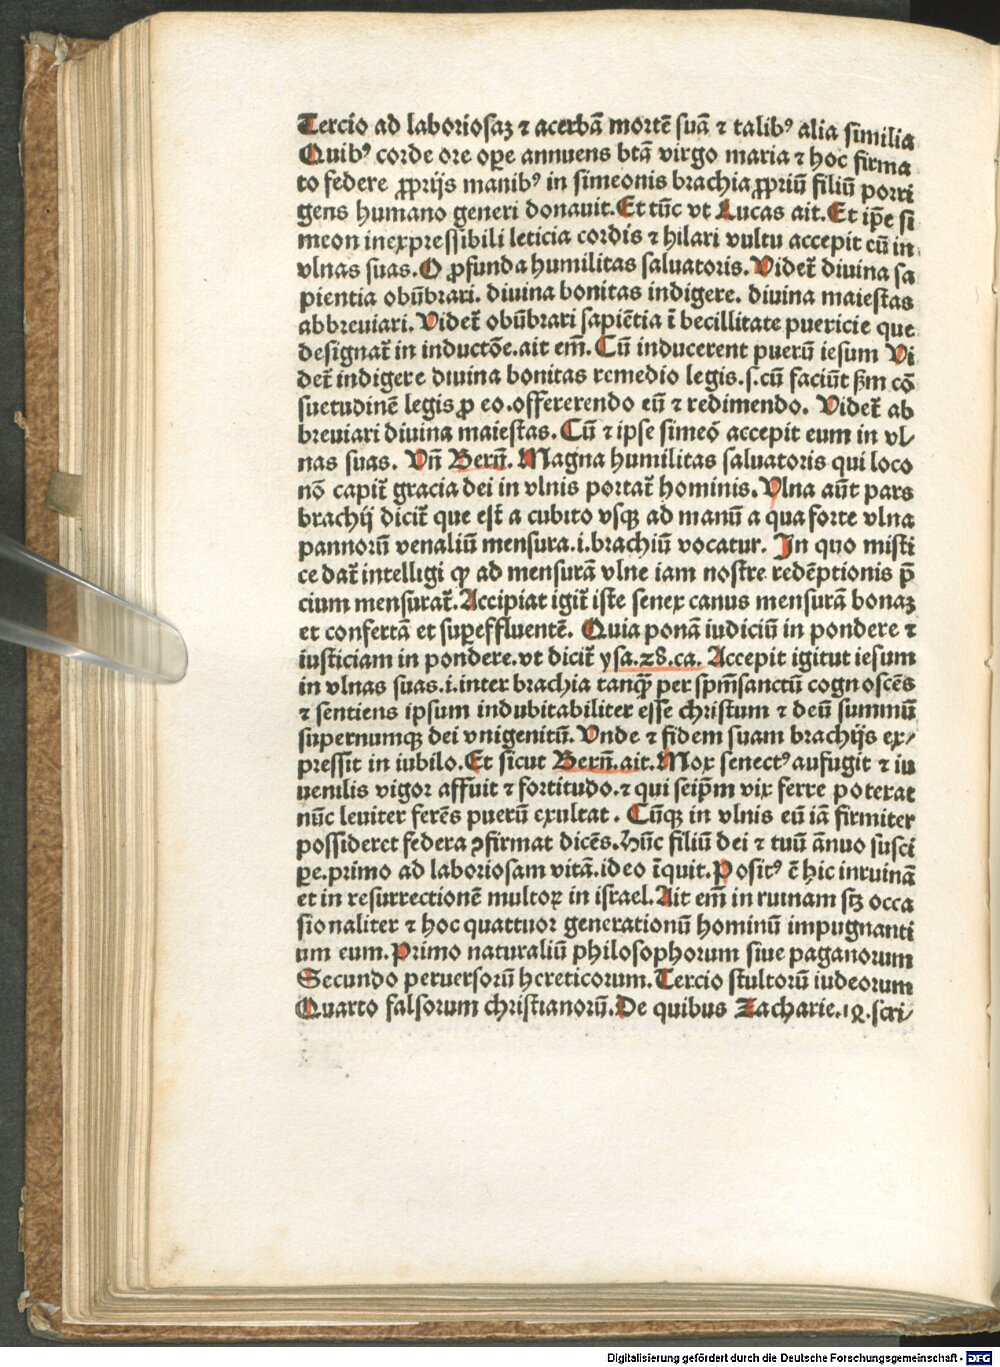 Tercio ad laboriosaꝫ ⁊ acerbã mortẽ suã ⁊ talibꝰ alia similia
Quibꝰ corde ore oꝑe annuens btã virgo maria ⁊ hoc firma
to federe ꝓprijs manibꝰ in simeonis brachia ꝓpriũ filiũ porri
gens humano generi donauit. Et tũc vt Lucas ait. Et ip̃e si
meon inexpressibili leticia cordis ⁊ hilari vultu accepit cũ in
vlnas suas. O ꝓfunda humilitas saluatoris. Videt̃ diuina sa
pientia obũbrari. diuina bonitas indigere. diuina maiestas
abbreuiari. Videt̃ obũbrari sapiẽtia ĩ becillitate puericie que
designat̃ in inductõe. ait em̃. Cũ inducerent puerũ iesum Vi
det̃ indigere diuina bonitas remedio legis. s. cũ faciũt ẜm cõ
suetudinẽ legis ꝓ eo. offererendo eũ ⁊ redimendo. Videt̃ ab
breuiari diuina maiestas. Cũ ⁊ ipse simeõ accepit eum in vl/
nas suas. Vñ Berñ. Magna humilitas saluatoris qui loco
nõ capit̃ gracia dei in vlnis portat̃ hominis. Vlna aũt pars
brachij dicit̃ que est a cubito vsqꝫ ad manũ a qua forte vlna
pannorũ venaliũ mensura. i. brachiũ vocatur. In quo misti
ce dat̃ intelligi ꝙ ad mensurã vlne iam nostre redẽptionis p̃
cium mensurat̃. Accipiat igit̃ iste senex canus mensurã bonaꝫ
et confertã et suꝑeffluentẽ. Quia ponã iudiciũ in pondere ⁊
iusticiam in pondere. vt dicit̃ ysa. 28. ca. Accepit igitut iesum
in vlnas suas. i. inter brachia tanqũ per spm̃sanctũ cognoscẽs
⁊ sentiens ipsum indubitabiliter esse christum ⁊ deũ summũ
supernumqꝫ dei vnigenitũ. Vnde ⁊ fidem suam brachijs ex/
pressit in iubilo. Et sicut Berñ. ait. Mox senectꝰ aufugit ⁊ iu
uenilis vigor affuit ⁊ fortitudo. ⁊ qui seip̃m vix ferre poterat
nũc leuiter ferẽs puerũ exultat. Cũqꝫ in vlnis eũ iã firmiter
possideret federa ꝯfirmat dicẽs. Hũc filiũ dei ⁊ tuũ ãnuo susci
ꝑe. primo ad laboriosam vitã. ideo ĩquit. Positꝰ ẽ hic inruinã
et in resurrectionẽ multoꝝ in israel. Ait em̃ in ruinam sꝫ occa
sionaliter ⁊ hoc quattuor generationũ hominũ impugnanti
um eum. Primo naturaliũ philosophorum siue paganorum
Secundo peruersorũ hereticorum. Tercio stultorũ iudeorum
Quarto falsorum christianorũ. De quibus Zacharie. 12. scri/
Digitalisierung gefördert durch die Deutsche Forschungsgemeinschaft - DFG